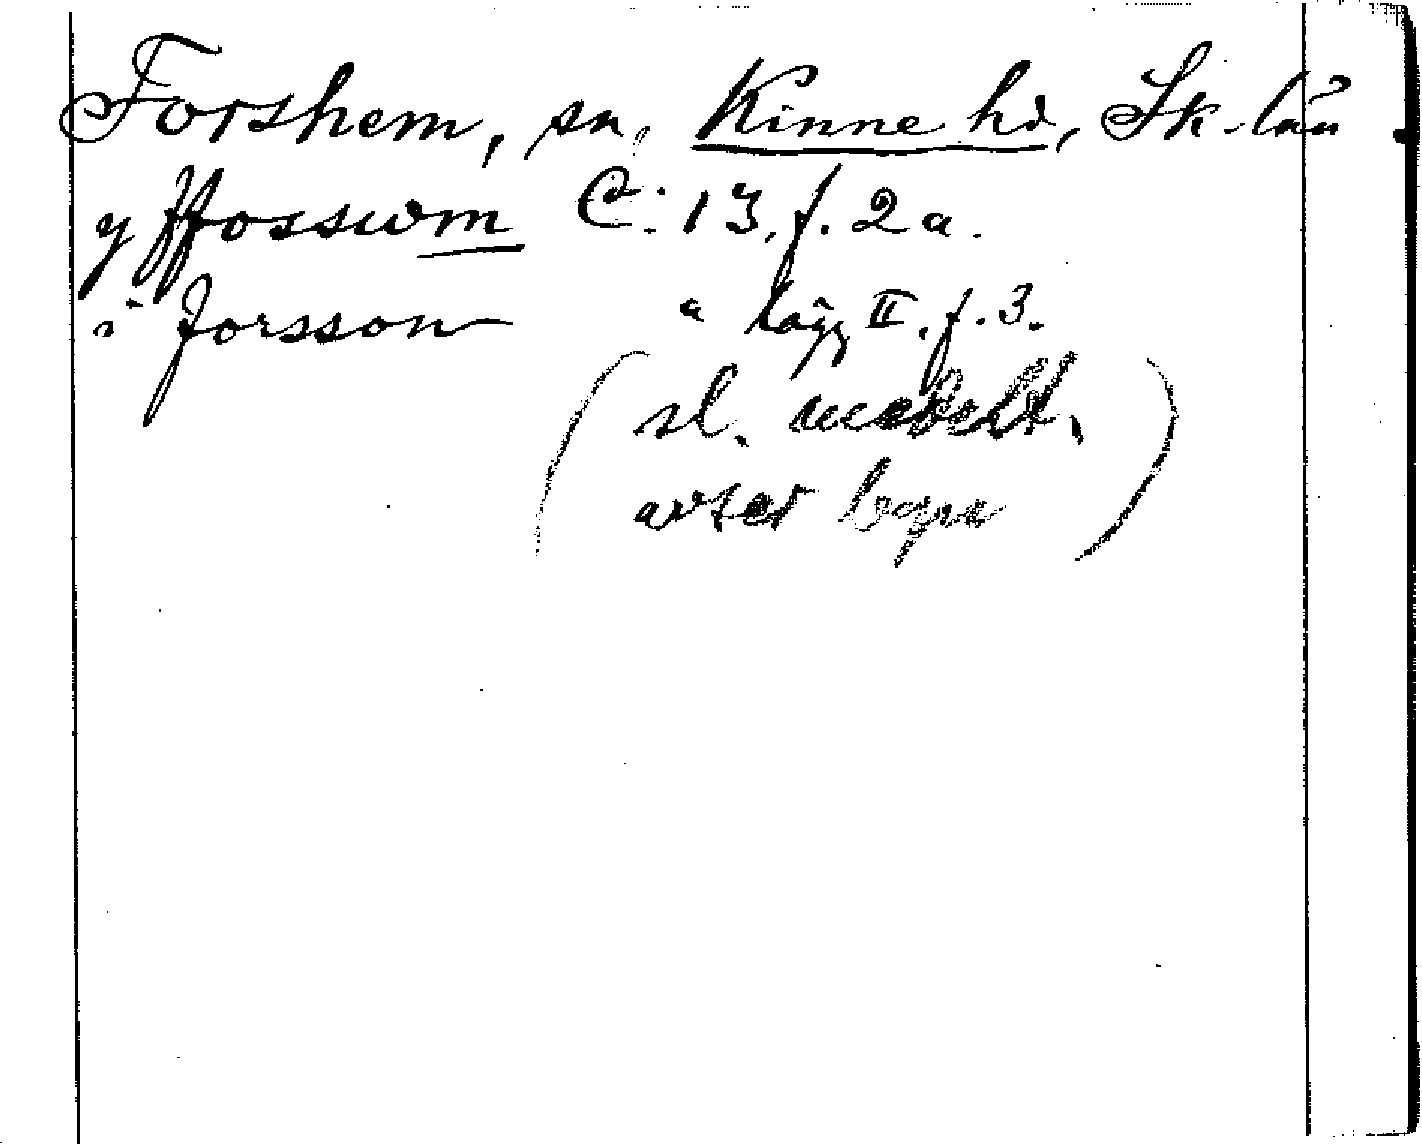 Forshem, sn, Kinne hd, Sk-län
y ffosswm C: 13, f. 2 a.
i forsson " lägg II. f. 3.
(sl. medelt.
avser byn)